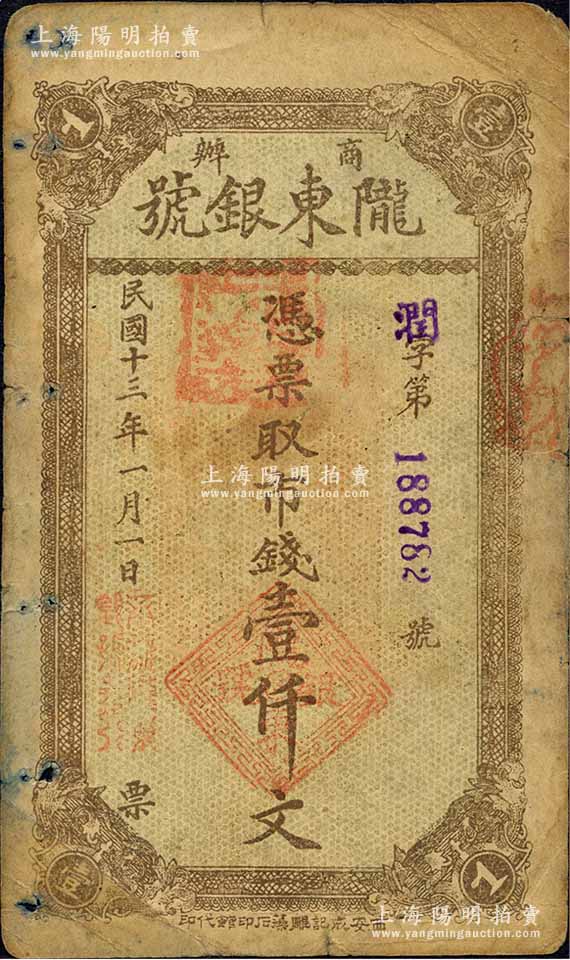 上海陽明拍賣
www.yangmingauction.com
壹
商辦
隴東銀號
潤字第188782號
憑票取市錢壹仟文
民國十三年一月一日
票
上海陽明拍賣
www.yangmingauction.com
壹
西安成記雕漢石印館代印
上海陽明拍賣
www.yangmingauction.com